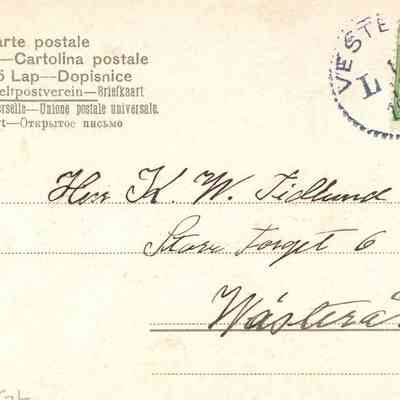 arte postale
—Cartolina postale
ő Lap—Dopisnice
eltpostverein—Briefkaart
erselle—Unione postale universale.
rt—Открытое письмо
VESTE
L
Herr K. W. Tidlund
Stora Torget 6
Wästerå